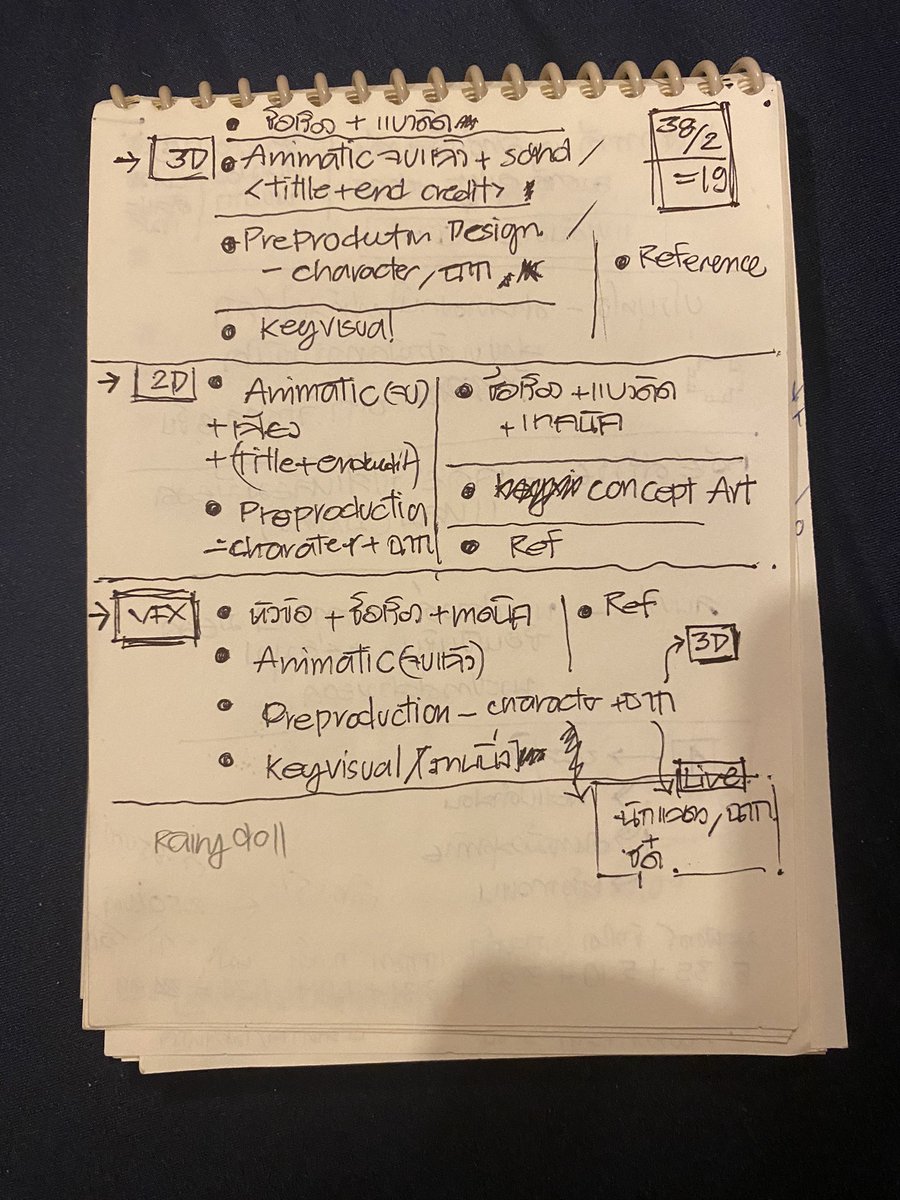 • ชื่อเรื่อง + แนวคิด
→ 3D • Animatic จบแล้ว + sound /
<title+end credit>
38/2
=19
• Preprodutm Design /
- character, ฉาก
• Reference
• Keyvisual
→ 2D • Animatic (จบ)
+ เสียง
+ (title+endcredit)
• Preproduction
= charater + ฉาก
• ชื่อเรื่อง + แนวคิด
+ เทคนิค
• concept Art
• Ref
→ VFX • หัวข้อ + ชื่อเรื่อง + เทคนิค
• Ref
• Animatic (จบแล้ว)
3D
• Preproduction - character + ฉาก
• Keyvisual / [ภาพนิ่ง]
Live
-นักแสดง, ฉาก
+
ชุด
Rainy doll